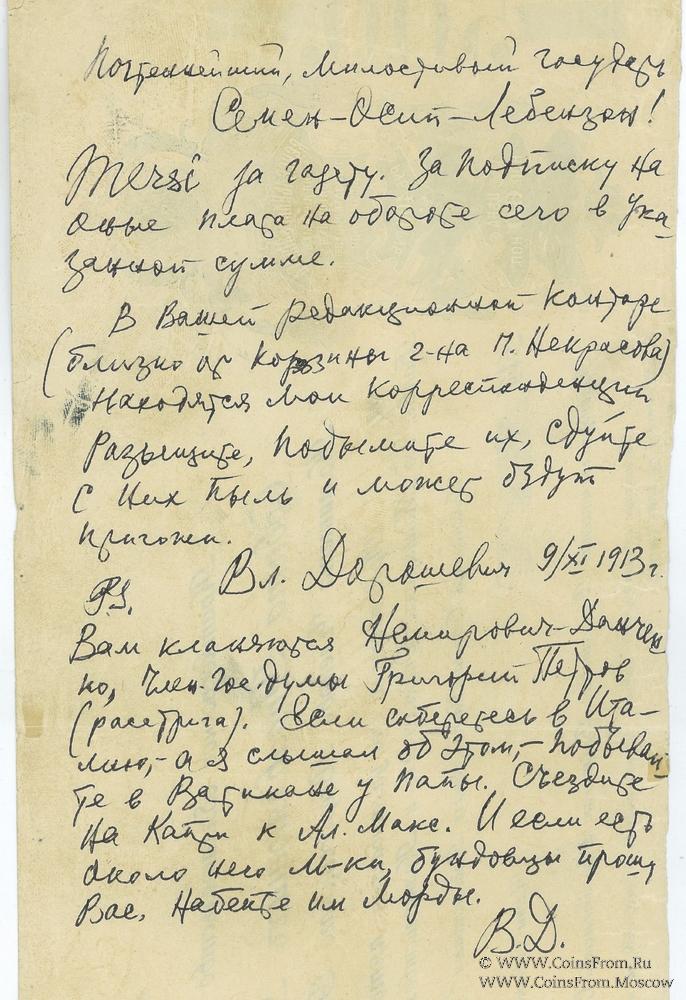 Почтеннейший, милостивый государь
Семен-Осип-Лебензон!
Mersi за газету. За подписку на
оные плата на обороте сего в ука-
занной сумме.
В Вашей редакционной конторе
(близко от корзины 2-на М. Некрасова)
находятся мои корреспонденции
Разыщите, подымите их, сдуйте
с них пыль и может будут
пригожи.
Вл. Дорошевич 9/XI 1913 г.
P.S.
Вам кланяются Немирович-Данчен-
ко, Член. Гос. Думы Григорий Петров
(расстрига). Если соберетесь в Ита-
лию,- а я слышал об этом,- побывай-
те в Ватикане у папы. Съездите
на Капри к Ал. Макс. И если есть
около него М-ки, бундовцы прошу
Вас, набейте им морды.
В.Д.
© WWW.CoinsFrom.Ru
WWW.CoinsFrom.Moscow